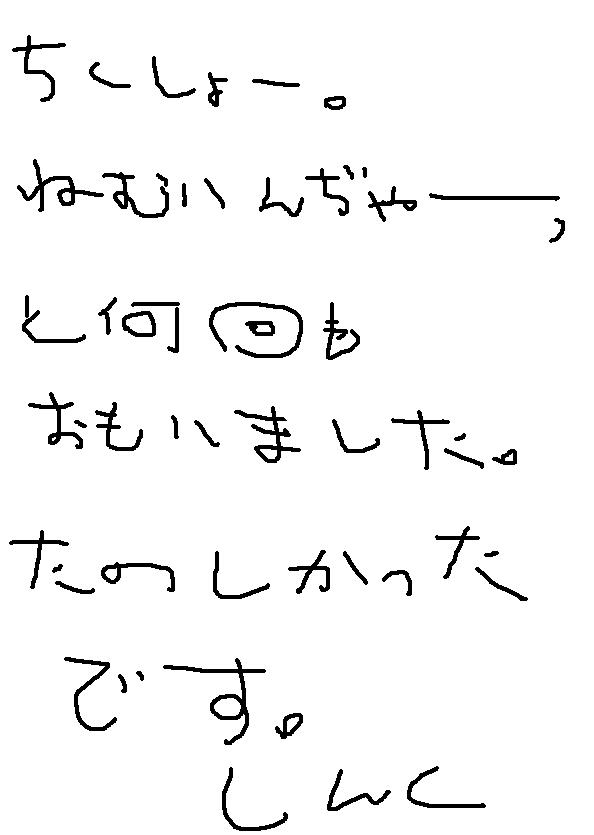 ちくしょー。
ねむいんぢゃー,
と何回も
おもいました。
たのしかった
です。
しんく